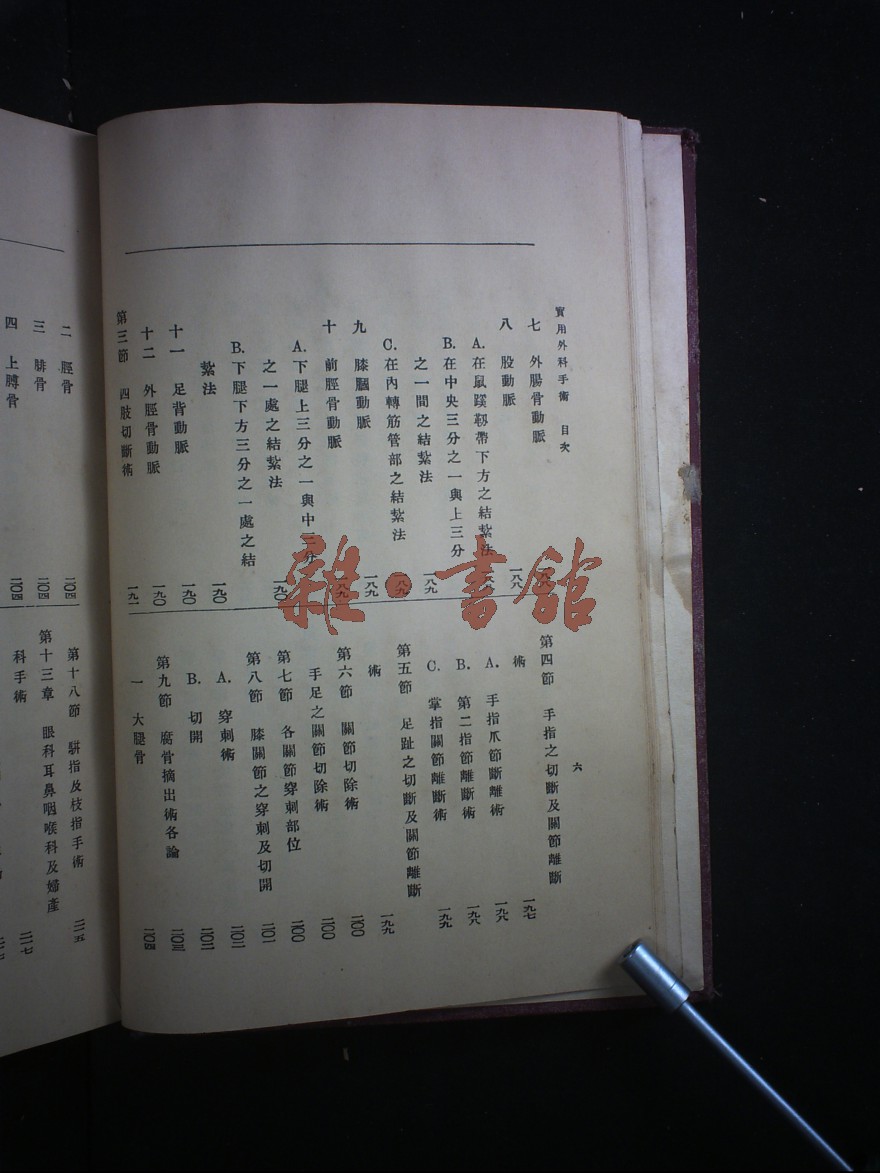 實用外科手術　目次
六
七　外腸骨動脈
八　股動脈　一八八
A. 在鼠蹊靱帶下方之結紮法
B. 在中央三分之一與上三分
之一間之結紮法　一八九
C. 在內轉筋管部之結紮法　一八九
九　膝膕動脈　一八九
十　前脛骨動脈　一八九
A. 下腿上三分之一與中三分
之一處之結紮法　一九〇
B. 下腿下方三分之一處之結
紮法　一九〇
十一　足背動脈　一九〇
十二　外脛骨動脈　一九〇
第三節　四肢切斷術　一九一
第四節　手指之切斷及關節離斷
術　一九七
A. 手指爪節斷離術　一九八
B. 第二指節離斷術　一九八
C. 掌指關節離斷術　一九九
第五節　足趾之切斷及關節離斷
術　一九九
第六節　關節切除術　二〇〇
手足之關節切除術　二〇〇
第七節　各關節穿刺部位　二〇〇
第八節　膝關節之穿刺及切開　二〇一
A. 穿刺術　二〇二
B. 切開　二〇二
第九節　腐骨摘出術各論　二〇三
一　大腿骨　二〇四
二　脛骨　二〇四
三　腓骨　二〇四
四　上膊骨　二〇四
第十八節　駢指及枝指手術　二二五
第十三章　眼科耳鼻咽喉科及婦產
科手術　二二七
雜·書館